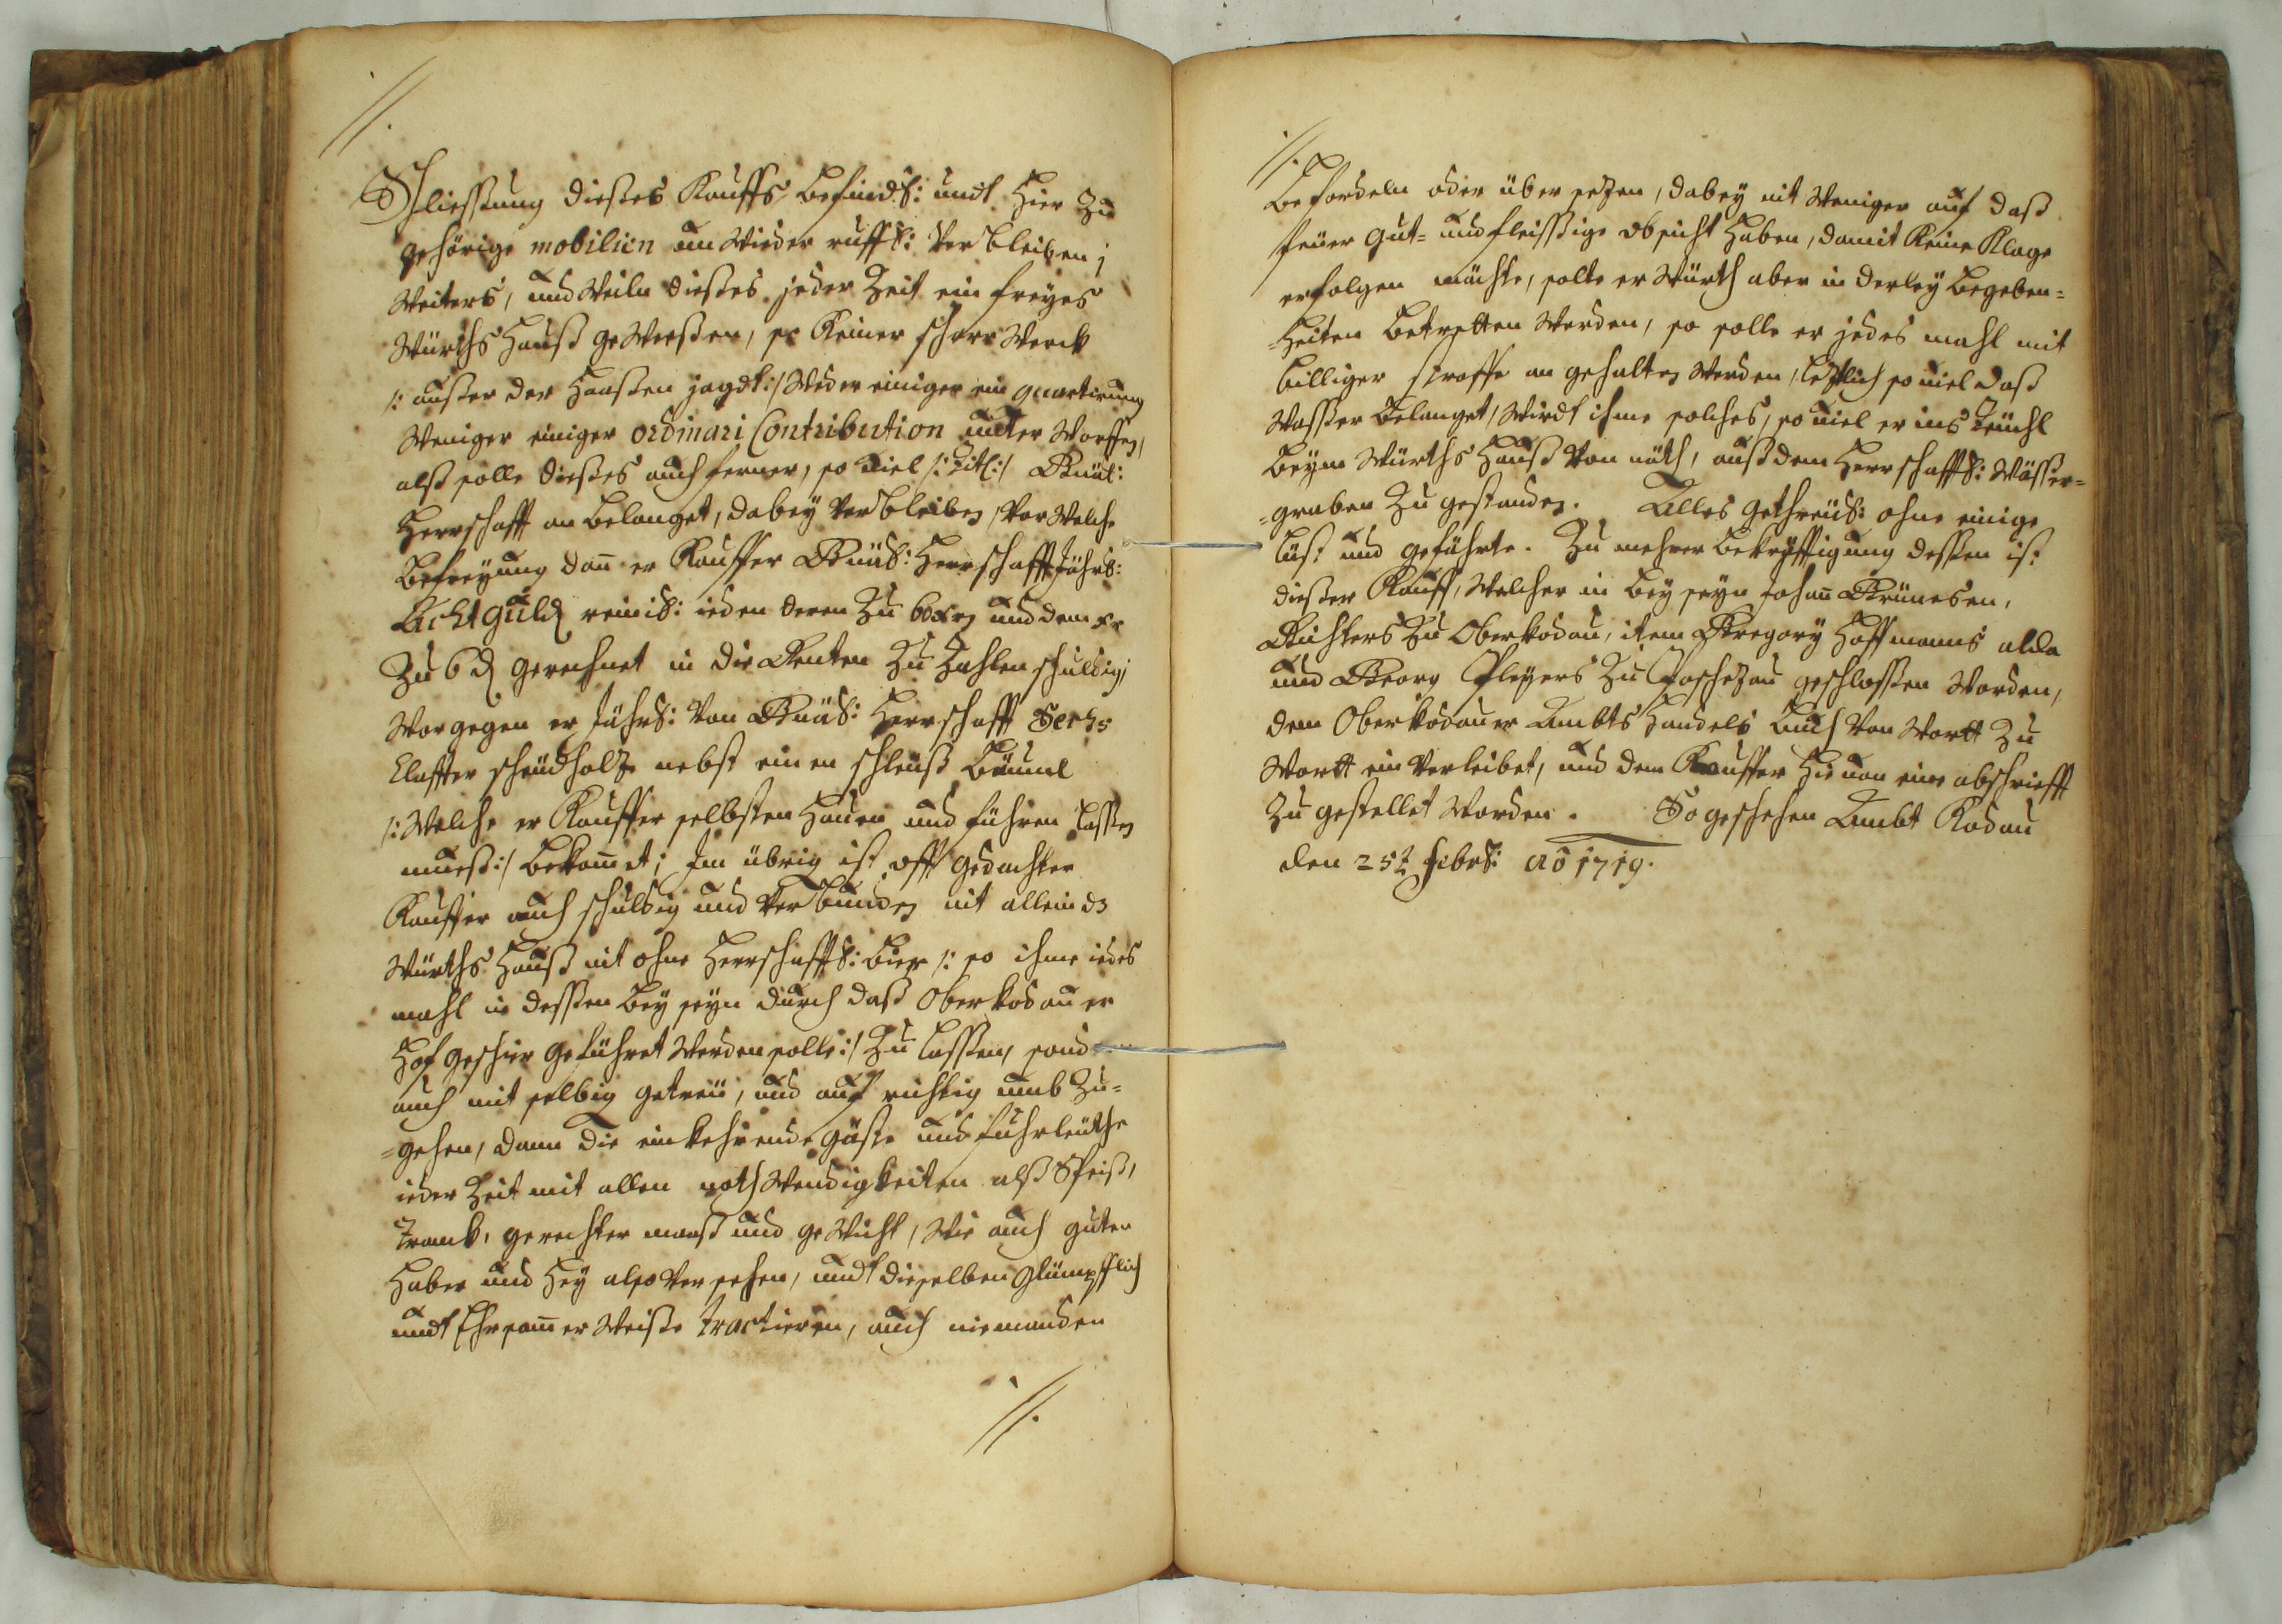 //.
Schliessung dieses Kauffs befindl: undt hier zu
gehörige mobilien un wieder ruffl: verbleiben;
Weiters, und weiln dieses jeder Zeit ein freyes
Würths Hauß geweßen, so keiner scharwerck
/: ausser der Haassen jagdt :/ weder einiger ein quartirung
weniger einiger ordinari Contribution unter worffen,
alß solle dieses auch ferner, so viel /: Titl: / Gnäd:
Herrschafft an belanget, dabey verbleiben, vor welche
befreyung dan̄ er Kauffer Gnäd: Herrschafft Jährl:
Acht guld reinis: ieden deren zu 60 xr und dem xr
zu 6 d gerechnet in die Renten zu zahlen schuldig;
Wor gegen er Jährl: von Gnäd: Herrschafft Sechs
Claffter scheidholz nebst einen schleiß bäuml
/: welche er Kauffer selbsten hauen und führen lassen
mueß :/ bekom̄et; Im übrig ist offt gedachter
Kauffer auch schuldig und verbunden nit allein dz
Würths Hauß nit ohne Herrschafftl: bier /: so ihme iedes
mahl in dessen bey seyn durch daß Oberkodauer
Hof geschir geführet werden solle :/ zu lassen, sond
auch mit selbig getreü, und auf richtig umb zu=
=gehen, dann die einkehrende Gäste und fuhrleüthe
ieder Zeit mit allen nothwendigkeiten alß Speiß,
Tranck, gerechter maaß und gewicht, wie auch guten
Haber und Hey also ver sehen, undt dieselben glümpfflich
undt Ehrsam̄er weiße tractieren, auch niemanden
//.
//.
befordeln oder über sezen, dabey nit weniger auf daß
feüer gut= und fleissige obsicht haben, damit keine Klage
erfolgen möchte, solte er Würth aber in derley begeben=
=heiten betretten werden, so solle er jedes mahl mit
billiger straffe an gehalten werden, leztlich so viel daß
Wasser belanget, wirdt ihme solches, so viel er ins Teüchl
beym Würths Hauß von nöth, auß dem Herrschafftl: Wässer=
=graben zu gestanden. Alles gethreül: ohne einige
List und gefährte. Zu mehrer bekräfftigung dessen ist
dieser Kauff, welcher in bey seyn Johan̄ Brünesen,
Richters zu Oberkodau, item Gregory Hoffmanns alda
und Georg Pleyers zu Poschezau geschlossen worden,
dem Oberkodauer Ambts Handels Buch von Wortt zu
Wortt ein verleibet, und dem Kauffer hievon eine abschrifft
zu gestellet worden. So geschehen Ambt Kodau
den 25t Febrl: Aō 1719.